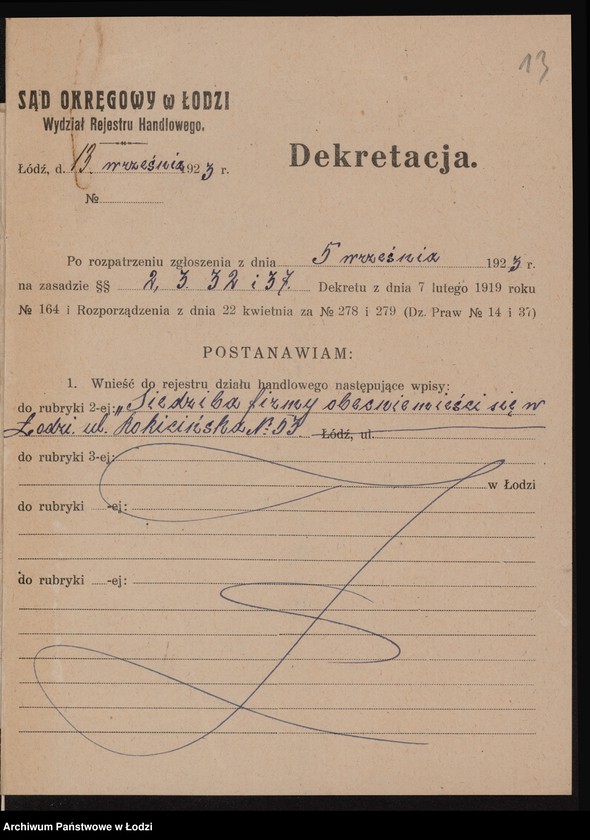 13
SĄD OKRĘGOWY w ŁODZI
Wydział Rejestru Handlowego.
Łódź, d. 13. września 1923 r.
Dekretacja.
№
Po rozpatrzeniu zgłoszenia z dnia 5 września 1923 r.
na zasadzie §§ 2, 3. 32 i 37. Dekretu z dnia 7 lutego 1919 roku
№ 164 i Rozporządzenia z dnia 22 kwietnia za № 278 i 279 (Dz. Praw № 14 i 37)
POSTANAWIAM:
1. Wnieść do rejestru działu handlowego następujące wpisy:
do rubryki 2-ej: „Siedziba firmy obecnie mieści się w
Łodzi, ul. Rokicińska № 53 Łódź, ul.
do rubryki 3-ej:
w Łodzi
do rubryki -ej:
do rubryki -ej:
Archiwum Państwowe w Łodzi